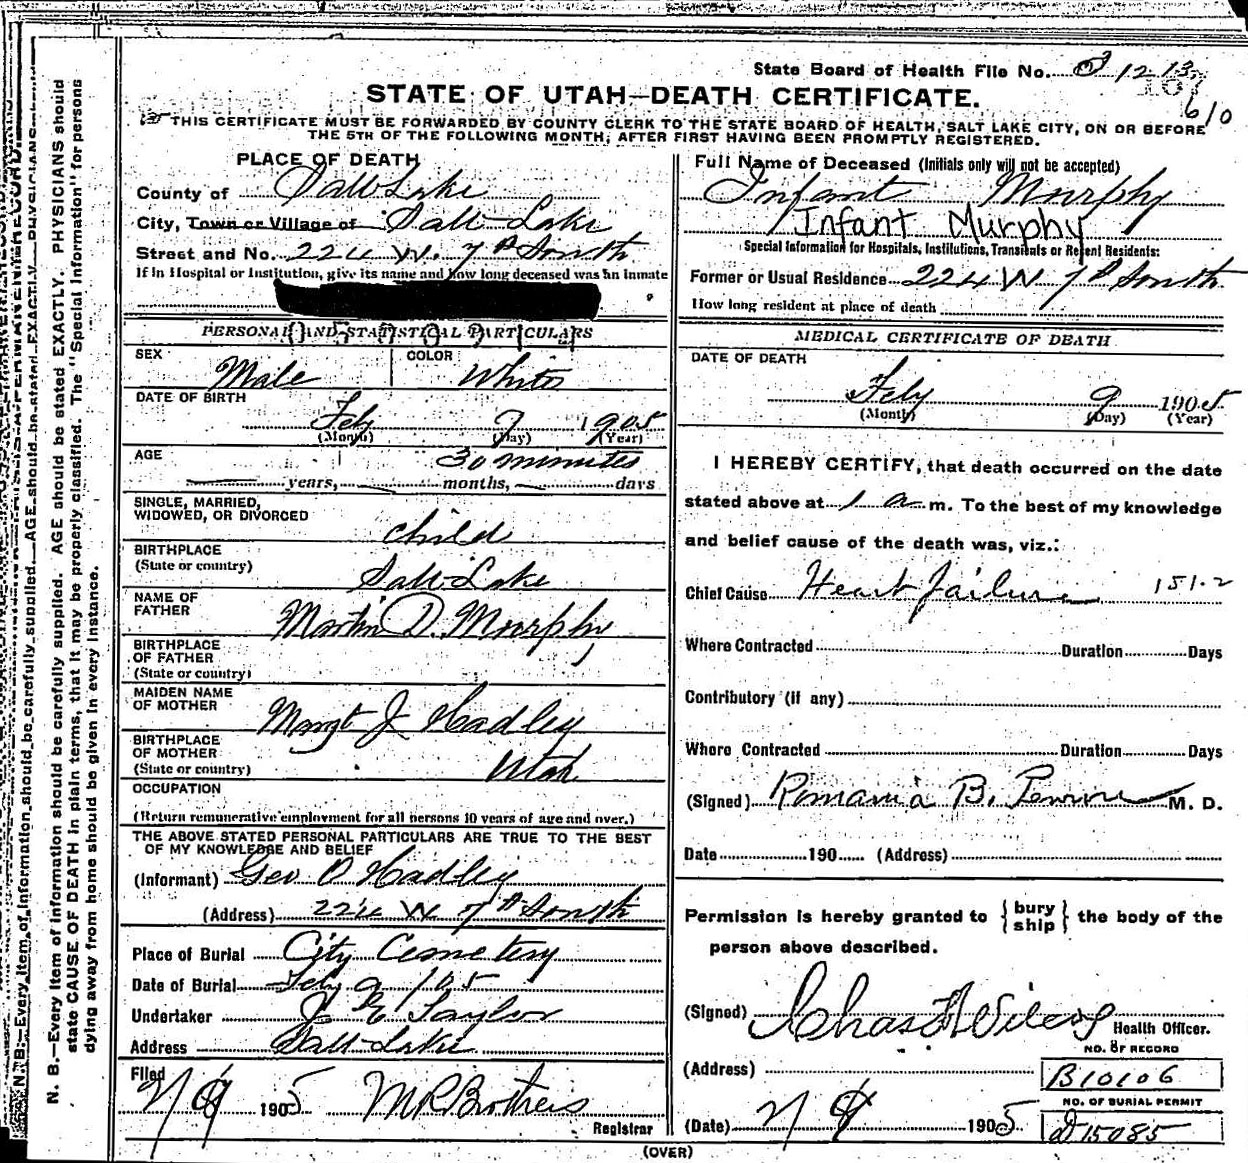 State Board of Health File No. 1213
610
STATE OF UTAH—DEATH CERTIFICATE.
THIS CERTIFICATE MUST BE FORWARDED BY COUNTY CLERK TO THE STATE BOARD OF HEALTH, SALT LAKE CITY, ON OR BEFORE
THE 5TH OF THE FOLLOWING MONTH, AFTER FIRST HAVING BEEN PROMPTLY REGISTERED.
PLACE OF DEATH
County of Salt Lake
City, Town or Village of Salt Lake
Street and No. 224 W. 7th South
If in Hospital or Institution, give its name and how long deceased was an inmate
PERSONAL AND STATISTICAL PARTICULARS
SEX Male COLOR White
DATE OF BIRTH
Feby 9 1905
(Month) (Day) (Year)
AGE 30 minutes
years, months, days
SINGLE, MARRIED,
WIDOWED, OR DIVORCED child
BIRTHPLACE
(State or country) Salt Lake
NAME OF
FATHER Martin D. Murphy
BIRTHPLACE
OF FATHER
(State or country)
MAIDEN NAME
OF MOTHER Margt J Hadley
BIRTHPLACE
OF MOTHER
(State or country) Utah
OCCUPATION
(Return remunerative employment for all persons 10 years of age and over.)
THE ABOVE STATED PERSONAL PARTICULARS ARE TRUE TO THE BEST
OF MY KNOWLEDGE AND BELIEF
(Informant) Geo O Hadley
(Address) 224 W 7th South
Place of Burial City Cemetery
Date of Burial Feby 9 1905
Undertaker J E Taylor
Address Salt Lake
Filed
2/9 1905 M R Brothers
Registrar
Full Name of Deceased (Initials only will not be accepted)
Infant Murphy
Infant Murphy
Special Information for Hospitals, Institutions, Transients or Recent Residents:
Former or Usual Residence 224 W 7th South
How long resident at place of death
MEDICAL CERTIFICATE OF DEATH
DATE OF DEATH
Feby 9 1905
(Month) (Day) (Year)
I HEREBY CERTIFY, that death occurred on the date
stated above at 1 a m. To the best of my knowledge
and belief cause of the death was, viz.:
Chief Cause Heart Failure 151-2
Where Contracted Duration Days
Contributory (if any)
Where Contracted Duration Days
(Signed) Romania B. Penrose M. D.
Date 190 (Address)
Permission is hereby granted to { bury
ship } the body of the
person above described.
(Signed) Chas F Wilcox
Health Officer.
(Address)
NO. OF RECORD
B10106
NO. OF BURIAL PERMIT
(Date) 2/9 1905 D15085
(OVER)
N. B.—Every item of information should be carefully supplied. AGE should be stated EXACTLY. PHYSICIANS should
state CAUSE OF DEATH in plain terms, that it may be properly classified. The "Special Information" for persons
dying away from home should be given in every instance.